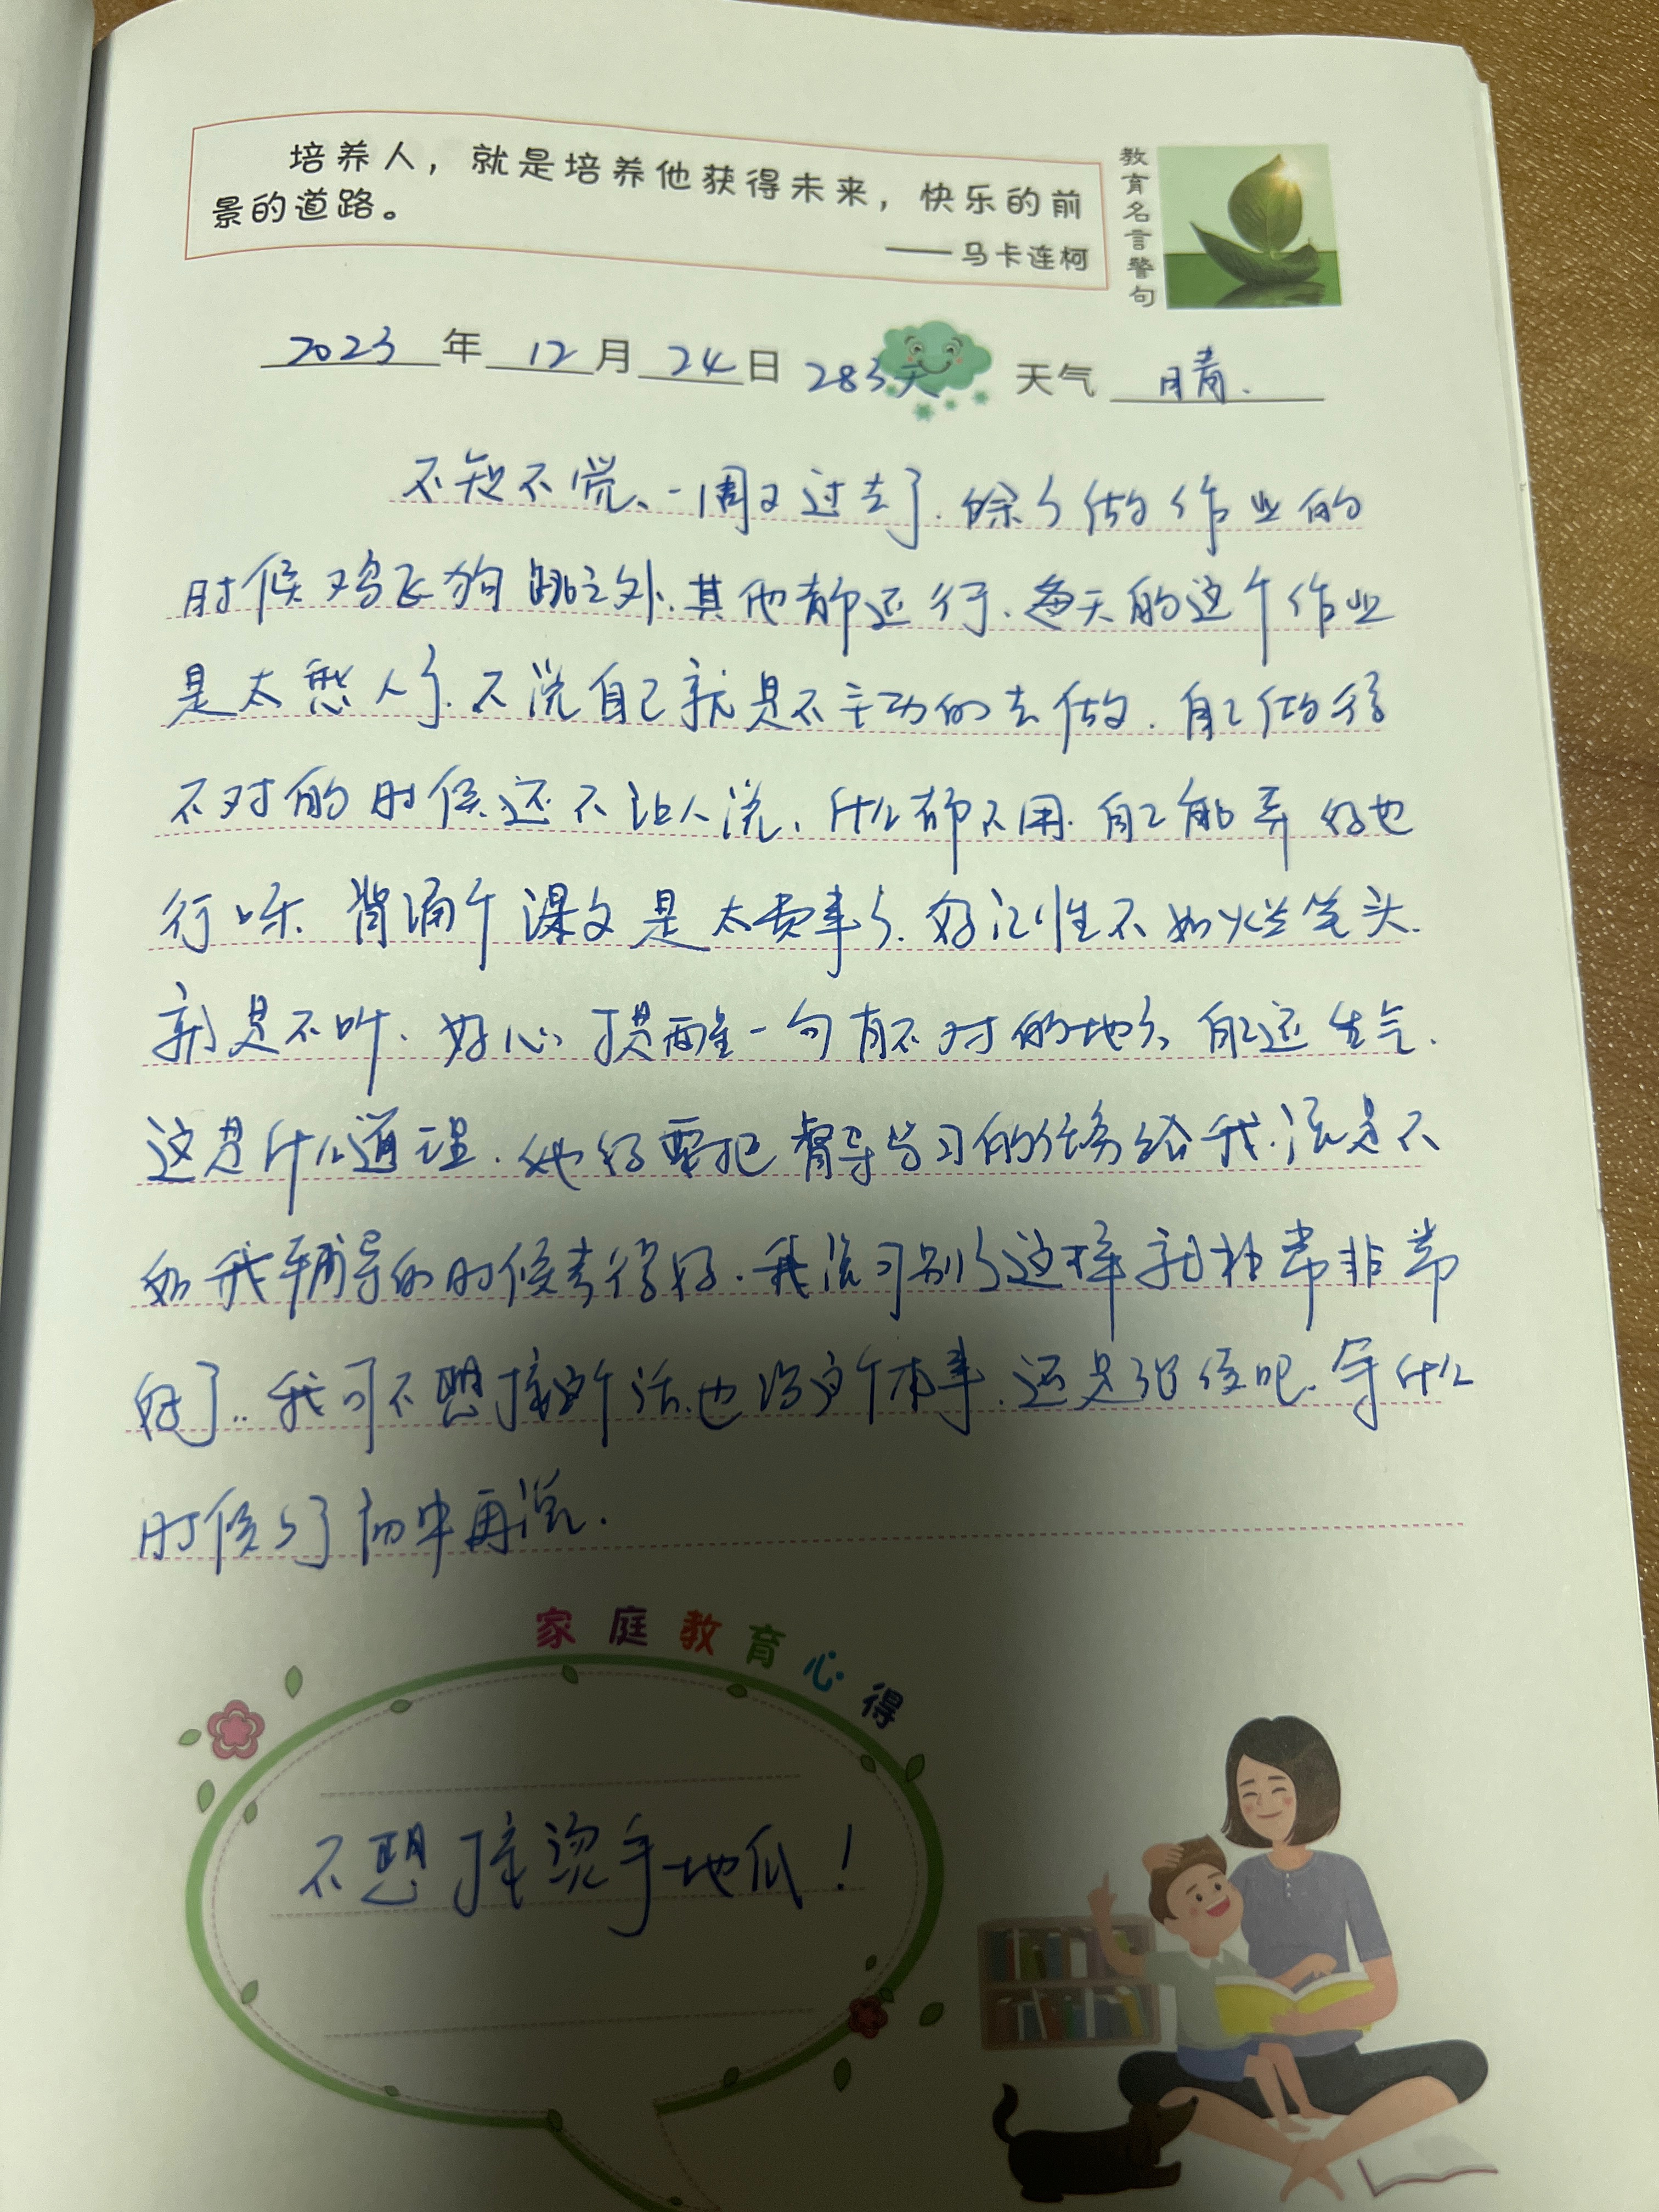 培养人，就是培养他获得未来，快乐的前
景的道路。
——马卡连柯
教育名言警句
2023年12月24日 283天 天气 晴.
不知不觉、一周又过去了.除了做作业的
时候鸡飞狗跳之外.其他都还行.每天的这个作业
是太愁人了.不说自己就是不主动的去做.自己做得
不对的时候还不让人说、什么都不用.自己能弄好也
行呀.背诵个课文是太费事了.好记性不如烂笔头.
就是不听、好心提醒一句有不对的地方自己还生气.
这是什么道理.她妈要把督导学习的任务给我.说是不
如我辅导的时候考得好.我说习别了这样就非常非常
好了..我可不想接这个活.也没这个本事.还是归位吧.等什么
时候上了初中再说.
家庭教育心得
不想接烫手地瓜！